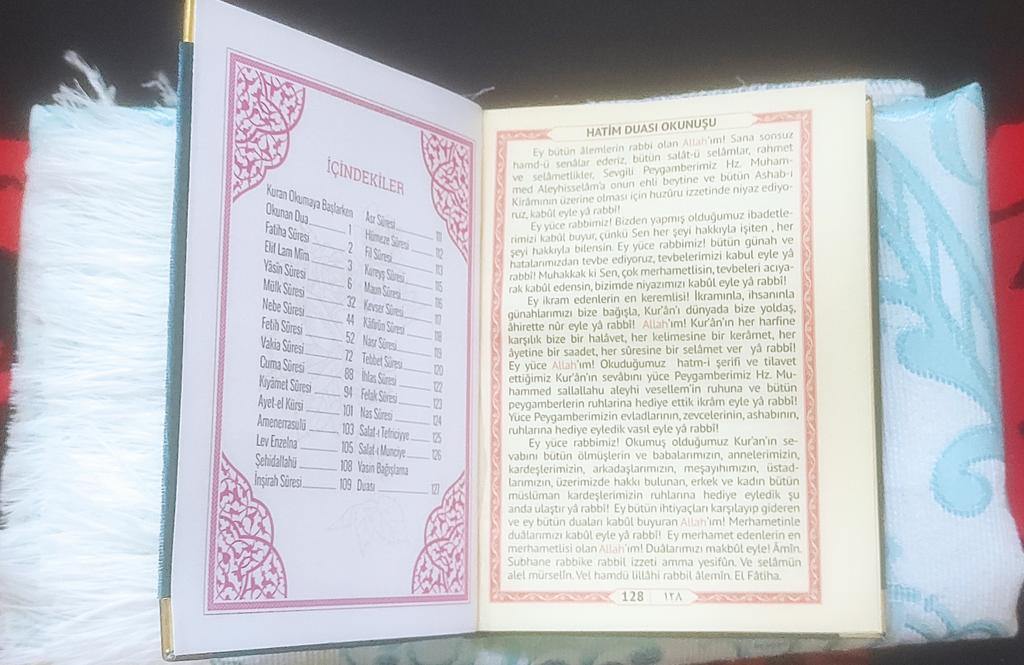 İÇİNDEKİLER
Kuran Okumaya Başlarken
Okunan Dua 1
Fatiha Sûresi 2
Elif Lam Mim 3
Yâsin Sûresi 6
Mülk Sûresi 32
Nebe Sûresi 44
Fetih Sûresi 52
Vakıa Sûresi 72
Cuma Sûresi 88
Kıyâmet Sûresi 94
Ayet-el Kürsi 101
Amenerrasulü 103
Lev Enzelna 105
Şehidallahü 108
İnşirah Sûresi 109
Asr Sûresi 111
Hümeze Sûresi 112
Fil Sûresi 113
Kureyş Sûresi 115
Maun Sûresi 116
Kevser Sûresi 117
Kâfirûn Sûresi 118
Nasr Sûresi 119
Tebbet Sûresi 120
İhlas Sûresi 122
Felak Sûresi 123
Nas Sûresi 124
Salat-ı Tefriciyye 125
Salat-ı Munciye 126
Yasin Bağışlama
Duası 127
HATİM DUASI OKUNUŞU
Ey bütün âlemlerin rabbi olan Allah'ım! Sana sonsuz
hamd-ü senâlar ederiz, bütün salât-ü selâmlar, rahmet
ve selâmetlikler, Sevgili Peygamberimiz Hz. Muham-
med Aleyhisselâm'a onun ehli beytine ve bütün Ashab-ı
Kirâmının üzerine olması için huzûru izzetinde niyaz ediyo-
ruz, kabûl eyle yâ rabbî!
Ey yüce rabbimiz! Bizden yapmış olduğumuz ibadetle-
rimizi kabûl buyur, çünkü Sen her şeyi hakkıyla işiten , her
şeyi hakkıyla bilensin. Ey yüce rabbimiz! bütün günah ve
hatalarımızdan tevbe ediyoruz, tevbelerimizi kabul eyle yâ
rabbî! Muhakkak ki Sen, çok merhametlisin, tevbeleri acıya-
rak kabûl edensin, bizimde niyazımızı kabûl eyle yâ rabbî!
Ey ikram edenlerin en keremlisi! İkramınla, ihsanınla
günahlarımızı bize bağışla, Kur'ân'ı dünyada bize yoldaş,
âhirette nûr eyle yâ rabbî! Allah'ım! Kur'ân'ın her harfine
karşılık bize bir halâvet, her kelimesine bir kerâmet, her
âyetine bir saadet, her sûresine bir selâmet ver yâ rabbî!
Ey yüce Allah'ım! Okuduğumuz hatm-i şerifi ve tilavet
ettiğimiz Kur'ân'ın sevâbını yüce Peygamberimiz Hz. Mu-
hammed sallallahu aleyhi vesellem'in ruhuna ve bütün
peygamberlerin ruhlarına hediye ettik ikrâm eyle yâ rabbî!
Yüce Peygamberimizin evladlarının, zevcelerinin, ashabının,
ruhlarına hediye eyledik vasıl eyle yâ rabbî!
Ey yüce rabbimiz! Okumuş olduğumuz Kur'an'ın se-
vabını bütün ölmüşlerin ve babalarımızın, annelerimizin,
kardeşlerimizin, arkadaşlarımızın, meşayıhımızın, üstad-
larımızın, üzerimizde hakkı bulunan, erkek ve kadın bütün
müslüman kardeşlerimizin ruhlarına hediye eyledik şu
anda ulaştır yâ rabbî! Ey bütün ihtiyaçları karşılayıp gideren
ve ey bütün duaları kabûl buyuran Allah'ım! Merhametinle
duâlarımızı kabul eyle yâ rabbî! Ey merhamet edenlerin en
merhametlisi olan Allah'ım! Duâlarımızı makbûl eyle! Âmîn.
Subhane rabbike rabbil izzeti amma yesifûn. Ve selâmün
alel mürselîn. Vel hamdü lillâhi rabbil âlemîn. El Fâtiha.
128 ١٢٨